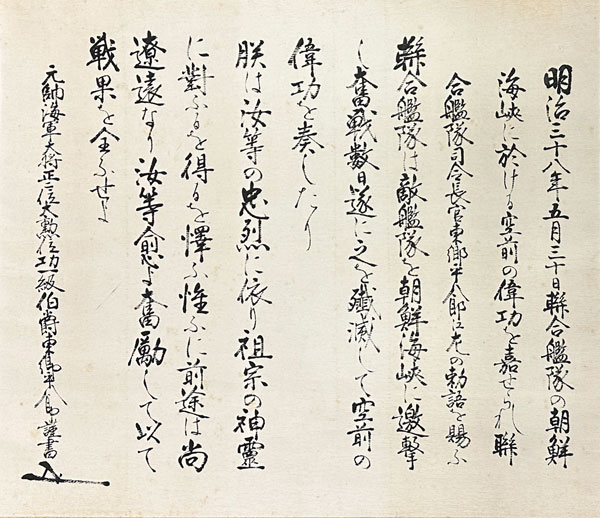 明治三十八年五月三十日聯合艦隊の朝鮮
海峡に於ける空前の偉功を嘉せられ聯
合艦隊司令長官東郷平八郎に左の勅語を賜ふ
聯合艦隊は敵艦隊を朝鮮海峡に邀撃
し奮戦数日遂に之を殲滅して空前の
偉功を奏したり
朕は汝等の忠烈に依り祖宗の神霊
に對ふるを得るを懌ふ惟ふに前途は尚
遼遠なり汝等愈よ奮励して以て
戦果を全ふせよ
元帥海軍大将正二位大勲位功一級伯爵東郷平八郎謹書